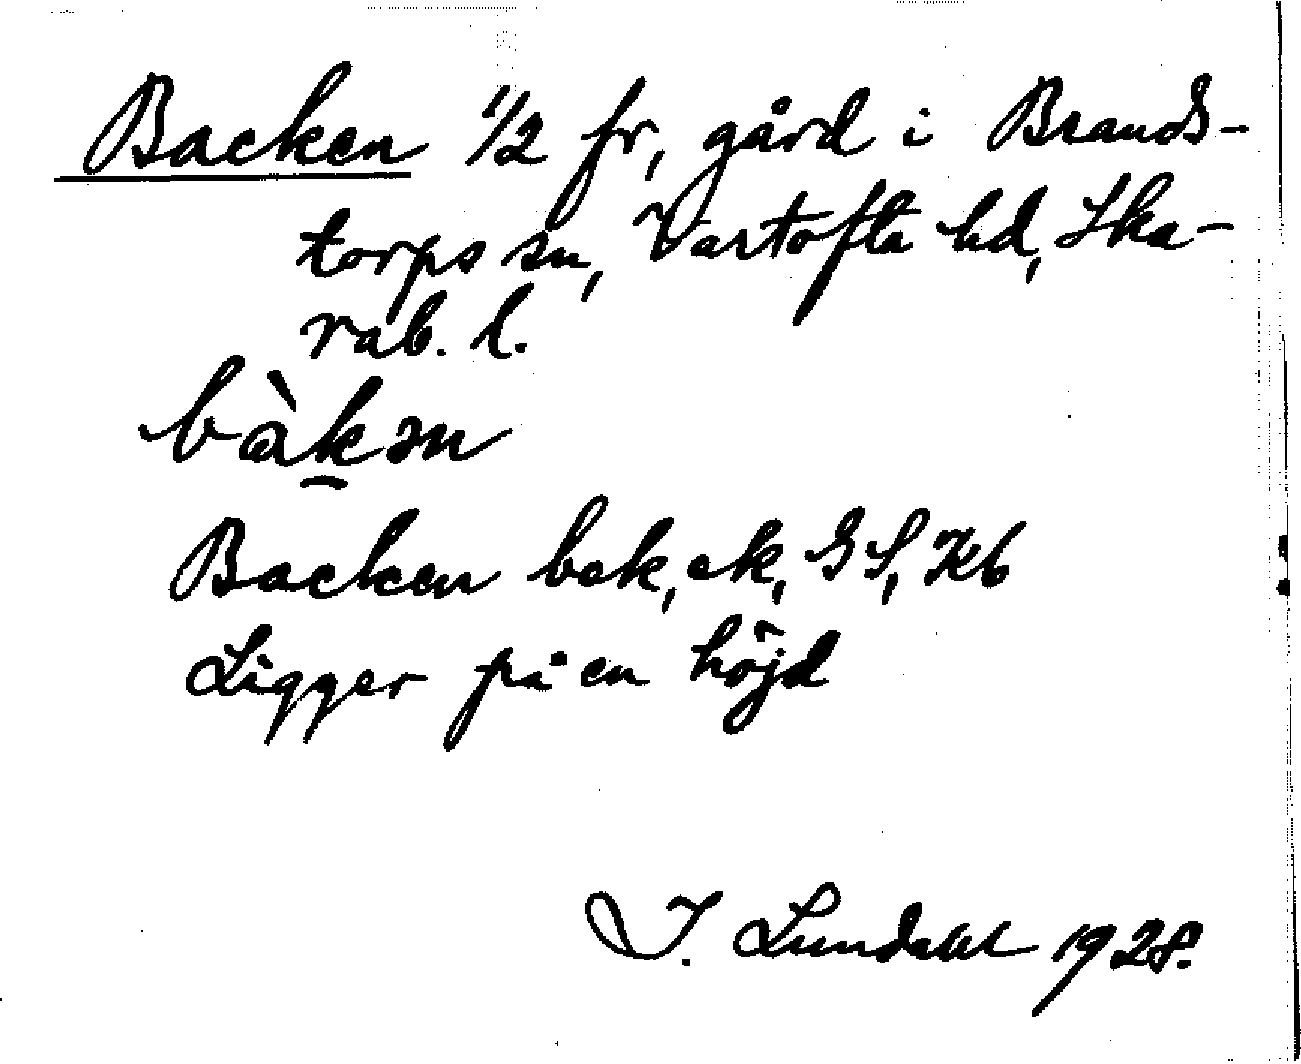 Backen 1/2 fr, gård i Brands-
torps sn, Vartofta hd, Ska-
rab. l.
bàkən
Backen bok, ek, GS, Kb
Ligger på en höjd
I. Lundahl 1928.